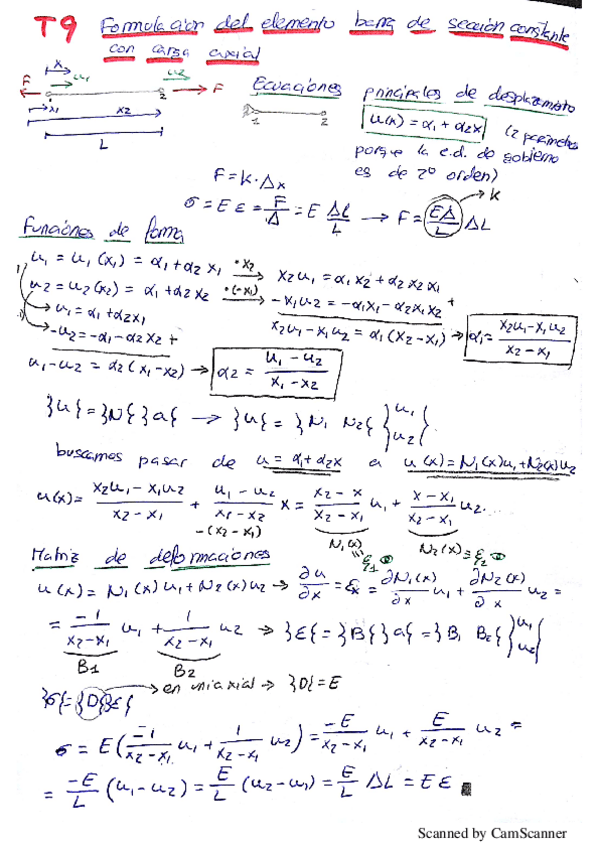 T9 Formulación del elemento barra de sección constante
con carga axial
x
u1 u2
F 1 2 F
x1 x2
L
Ecuaciones principales de desplazamiento
1 2
u(x) = α1 + α2x (2 parámetros
porque la e.d. de gobierno
es de 2º orden)
F = K·Δx
σ = E ε = F/A = E ΔL/L → F = EA/L ΔL → K
Funciones de forma
u1 = u1(x1) = α1 + α2 x1 —·x2→ x2u1 = α1x2 + α2x2x1
u2 = u2(x2) = α1 + α2 x2 —·(-x1)→ -x1u2 = -α1x1 - α2x1x2 +
u1 = α1 + α2x1
x2u1 - x1u2 = α1(x2 - x1) → α1 = (x2u1 - x1u2)/(x2 - x1)
-u2 = -α1 - α2x2 +
u1 - u2 = α2(x1 - x2) → α2 = (u1 - u2)/(x1 - x2)
}u{ = }N{ }a{ → }u{ = }N1 N2{ }u1 u2{
buscamos pasar de u = α1 + α2x a u(x) = N1(x)u1 + N2(x)u2
u(x) = (x2u1 - x1u2)/(x2 - x1) + (u1 - u2)/(x1 - x2) x = (x2 - x)/(x2 - x1) u1 + (x - x1)/(x2 - x1) u2.
-(x2 - x1) N1(x) ≡ ξ1 N2(x) ≡ ξ2
Matriz de deformaciones
u(x) = N1(x)u1 + N2(x)u2 → ∂u/∂x = εx = ∂N1(x)/∂x u1 + ∂N2(x)/∂x u2 =
= -1/(x2 - x1) u1 + 1/(x2 - x1) u2 → }ε{ = }B{ }a{ = }B1 B2{ }u1 u2{
B1 B2
}σ{ = }D{ }ε{ → en uniaxial → }D{ = E
σ = E(-1/(x2 - x1) u1 + 1/(x2 - x1) u2) = -E/(x2 - x1) u1 + E/(x2 - x1) u2 =
= -E/L (u1 - u2) = E/L (u2 - u1) = E/L ΔL = E ε
Scanned by CamScanner